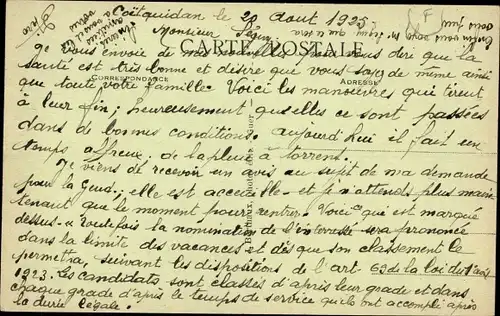 Coëtquidan le 20 Aout 1925
Monsieur Séguin
CARTE POSTALE
CORRESPONDANCE
ADRESSE
Je vous envoie de mes nouvelles pour vous dire que la
santé est très bonne et désire que vous soyez de même ainsi
que toute votre famille. Voici les manœuvres qui tirent
à leur fin; heureusement qu'elles ce sont passées
dans de bonnes conditions. aujourd'hui il fait un
temps affreux; de la pluie à torrens.
Je viens de recevoir un avis au sujet de ma demande
pour la Gend; elle est acceuillie et je n'attends plus main
tenant que le moment pour rentrer. Voici ce que est marqué
dessus "Toutefois la nomination de l'interessé sera prononcée
dans la limite des vacances et dès que son classement le
permetra, suivant les dispositions de l'art 63 de la loi du
1923. Les candidats sont classés d'après leur grade et dans
chaque grade d'après le temps de service qu'ils ont accompli après
la durée légale.